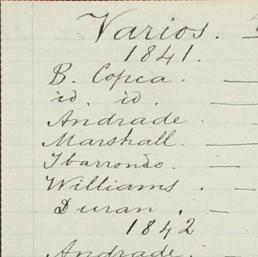 Varios.
1841.
B. Copca. —
id. id. —
Andrade. —
Marshall. —
Ibarrondo. —
Williams. —
Duran. —
1842
Andrade. —